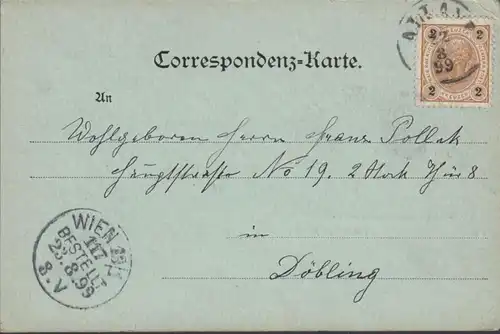 ALLAND
2
8
99
2 2
2 2
Correspondenz-Karte.
An
Wohlgeboren Herrn Franz Pollak
Hauptstrasse No 19. 2 Stock Thür 8
in
Döbling
WIEN
117
BESTELLT
23.8.99
8.V